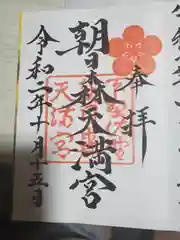 奉拝
朝日森天満宮
令和二年十月十五日
天満宮